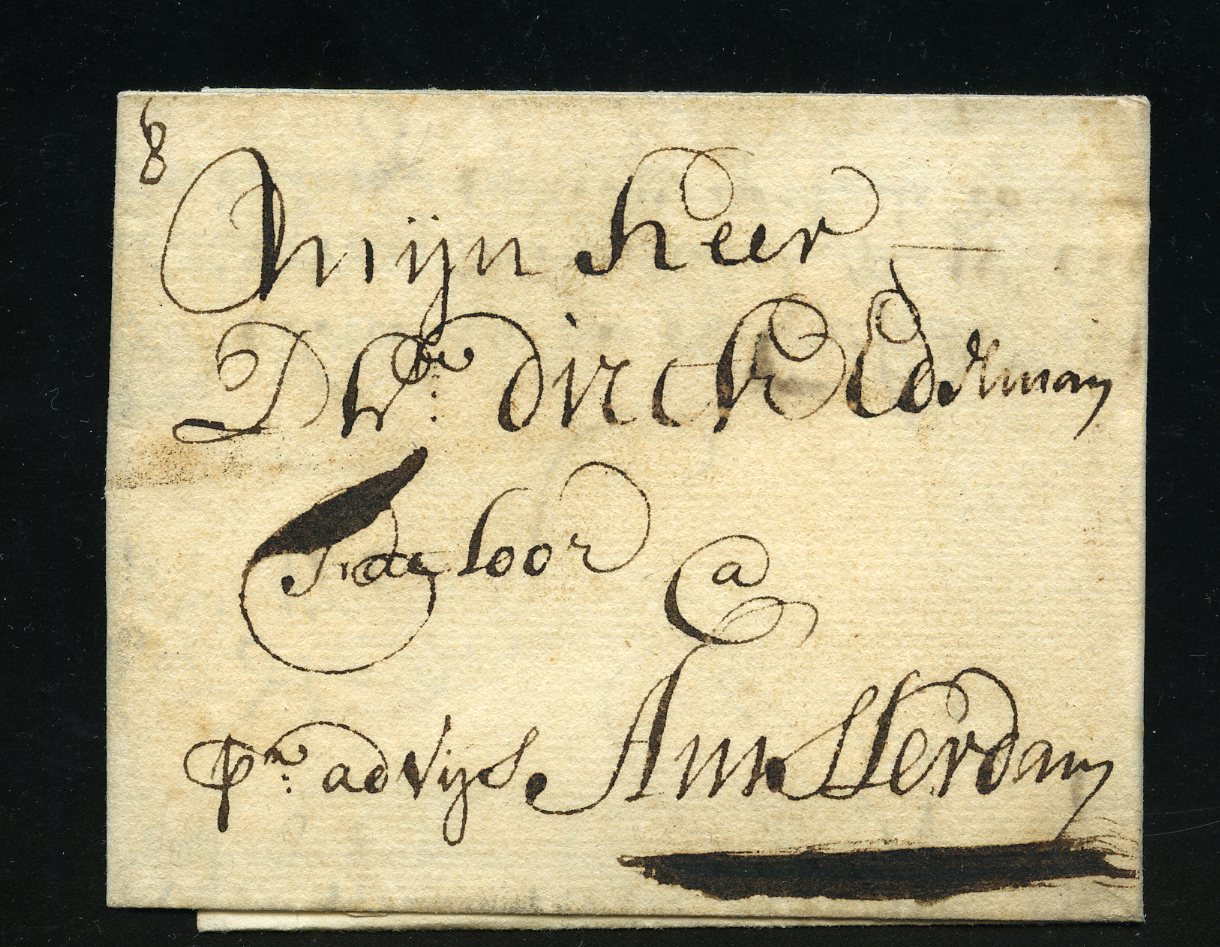 8
Mijn Heer
D hr. dirck
de loor
a
pr. advijs Amsterdam